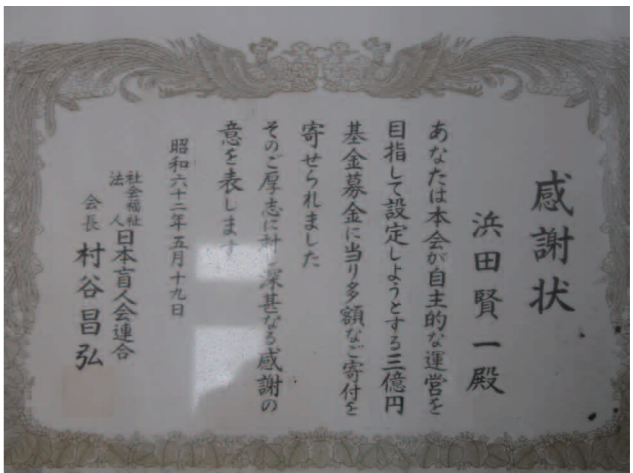 感謝状
浜田賢一殿
あなたは本会が自主的な運営を
目指して設定しようとする三億円
基金募金に当り多額なご寄付を
寄せられました
そのご厚志に対し深甚なる感謝の
意を表します
昭和六十二年五月十九日
社会福祉法人日本盲人会連合
会長 村谷昌弘